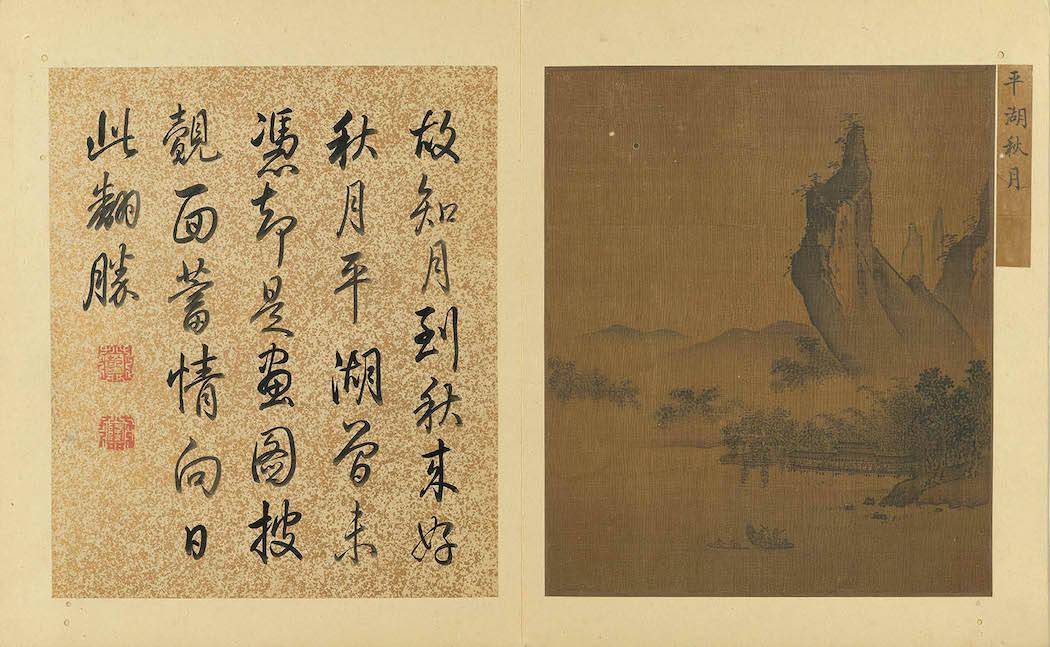 平湖秋月
故知月到秋来好
秋月平湖曾未
憑却是畫圖披
覿面蓄情向日
此翻勝